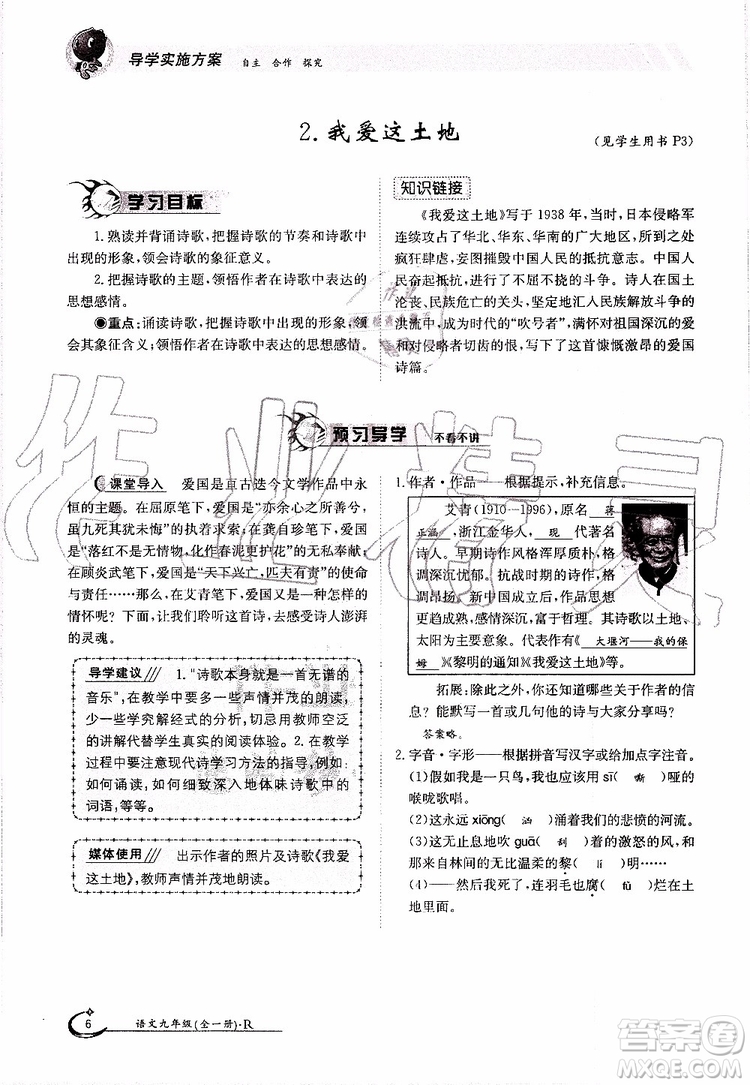 导学实施方案 自主 合作 探究
2.我爱这土地
(见学生用书 P3)
学习目标
1.熟读并背诵诗歌,把握诗歌的节奏和诗歌中
出现的形象,领会诗歌的象征意义。
2.把握诗歌的主题,领悟作者在诗歌中表达的
思想感情。
◉重点:诵读诗歌,把握诗歌中出现的形象,领
会其象征含义;领悟作者在诗歌中表达的思想感情。
知识链接
《我爱这土地》写于 1938 年,当时,日本侵略军
连续攻占了华北、华东、华南的广大地区,所到之处
疯狂肆虐,妄图摧毁中国人民的抵抗意志。中国人
民奋起抵抗,进行了不屈不挠的斗争。诗人在国土
沦丧、民族危亡的关头,坚定地汇入民族解放斗争的
洪流中,成为时代的“吹号者”,满怀对祖国深沉的爱
和对侵略者切齿的恨,写下了这首慷慨激昂的爱国
诗篇。
预习导学 不看不讲
课堂导入 爱国是亘古迭今文学作品中永
恒的主题。在屈原笔下,爱国是“亦余心之所善兮,
虽九死其犹未悔”的执着求索;在龚自珍笔下,爱国
是“落红不是无情物,化作春泥更护花”的无私奉献;
在顾炎武笔下,爱国是“天下兴亡,匹夫有责”的使命
与责任……那么,在艾青笔下,爱国是一种怎样的
情怀呢?下面,让我们聆听这首诗,去感受诗人澎湃
的灵魂。
导学建议 1.“诗歌本身就是一首无谱的
音乐”,在教学中要多一些声情并茂的朗读,
少一些学究解经式的分析,切忌用教师空泛
的讲解代替学生真实的阅读体验。2.在教学
过程中要注意现代诗学习方法的指导,例如:
如何诵读、如何细致深入地体味诗歌中的
词语,等等。
媒体使用 出示作者的照片及诗歌《我爱
这土地》,教师声情并茂地朗读。
1.作者·作品——根据提示,补充信息。
艾青(1910—1996),原名 蒋
正涵 ,浙江金华人, 现 代著名
诗人。早期诗作风格浑厚质朴,格
调深沉忧郁。抗战时期的诗作,格
调昂扬。新中国成立后,作品思想
更趋成熟,感情深沉,富于哲理。其诗歌以土地、
太阳为主要意象。代表作有《 大堰河——我的保
姆 》《黎明的通知》《我爱这土地》等。
拓展:除此之外,你还知道哪些关于作者的信
息?能默写一首或几句他的诗与大家分享吗?
答案略。
2.字音·字形——根据拼音写汉字或给加点字注音。
(1)假如我是一只鸟,/我也应该用 sī( 嘶 )哑的
喉咙歌唱。
(2)这永远 xiōng( 汹 )涌着我们的悲愤的河流。
(3)这无止息地吹 guā( 刮 )着的激怒的风,/和
那来自林间的无比温柔的黎( lí )明……
(4)——然后我死了,/连羽毛也腐( fǔ )烂在土
地里面。
6 语文九年级(全一册)·R
作业精灵